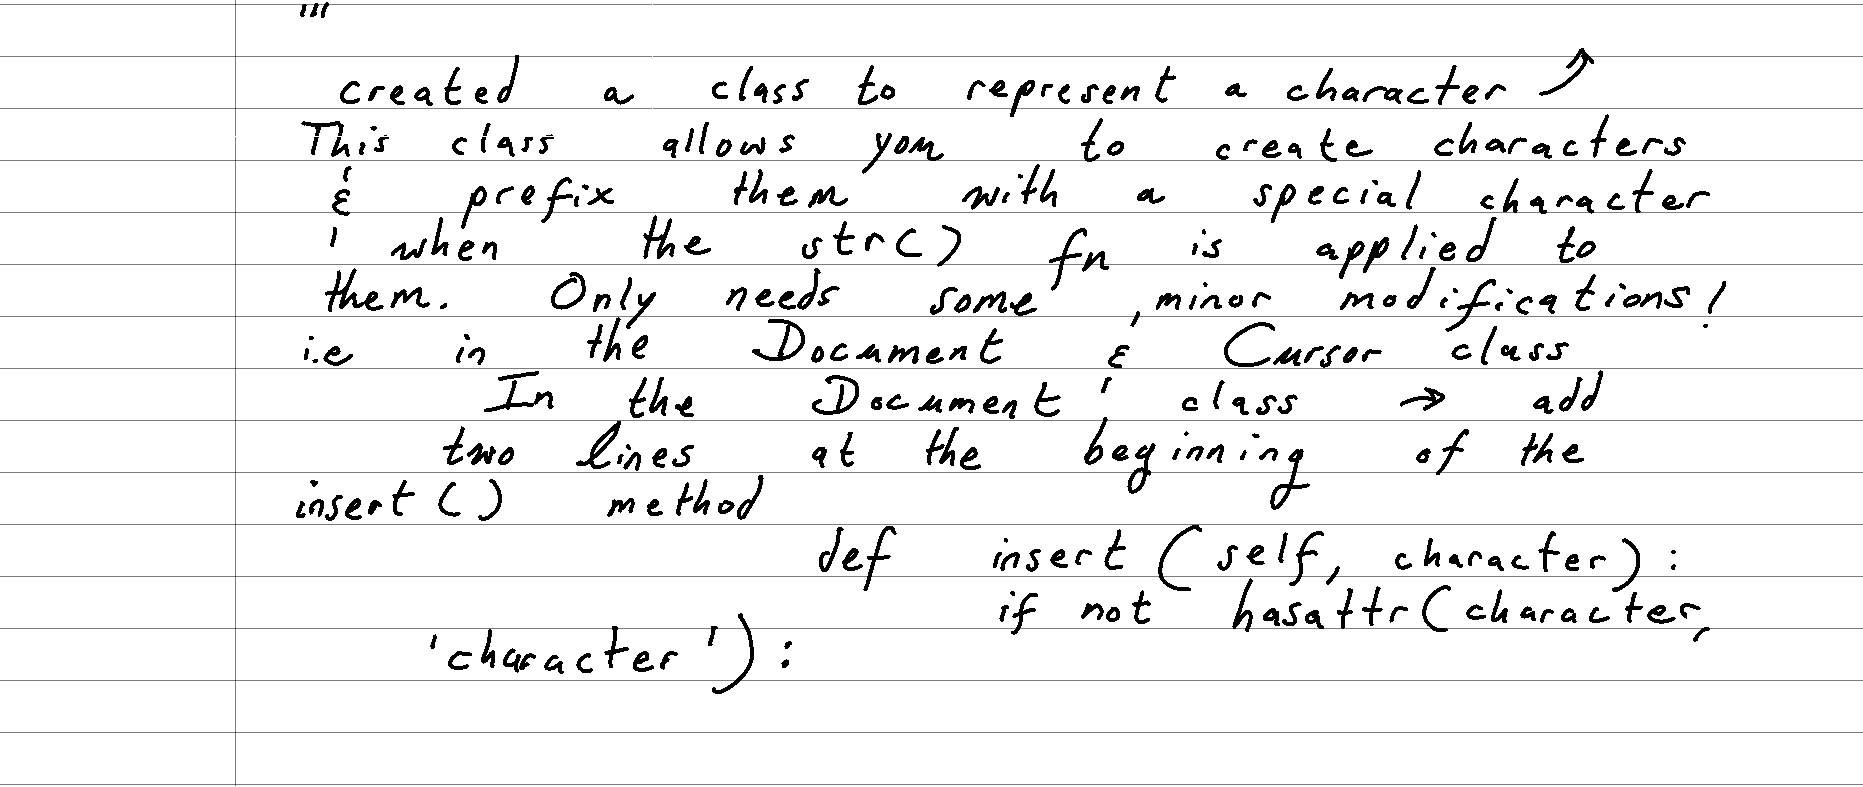 '''
created a class to represent a character ⤴
This class allows you to create characters
& prefix them with a special character
when the str() fn is applied to
them. Only needs some minor modifications!
i.e in the Document & Cursor class
In the Document class → add
two lines at the beginning of the
insert() method
def insert(self, character):
if not hasattr(character,
'character'):